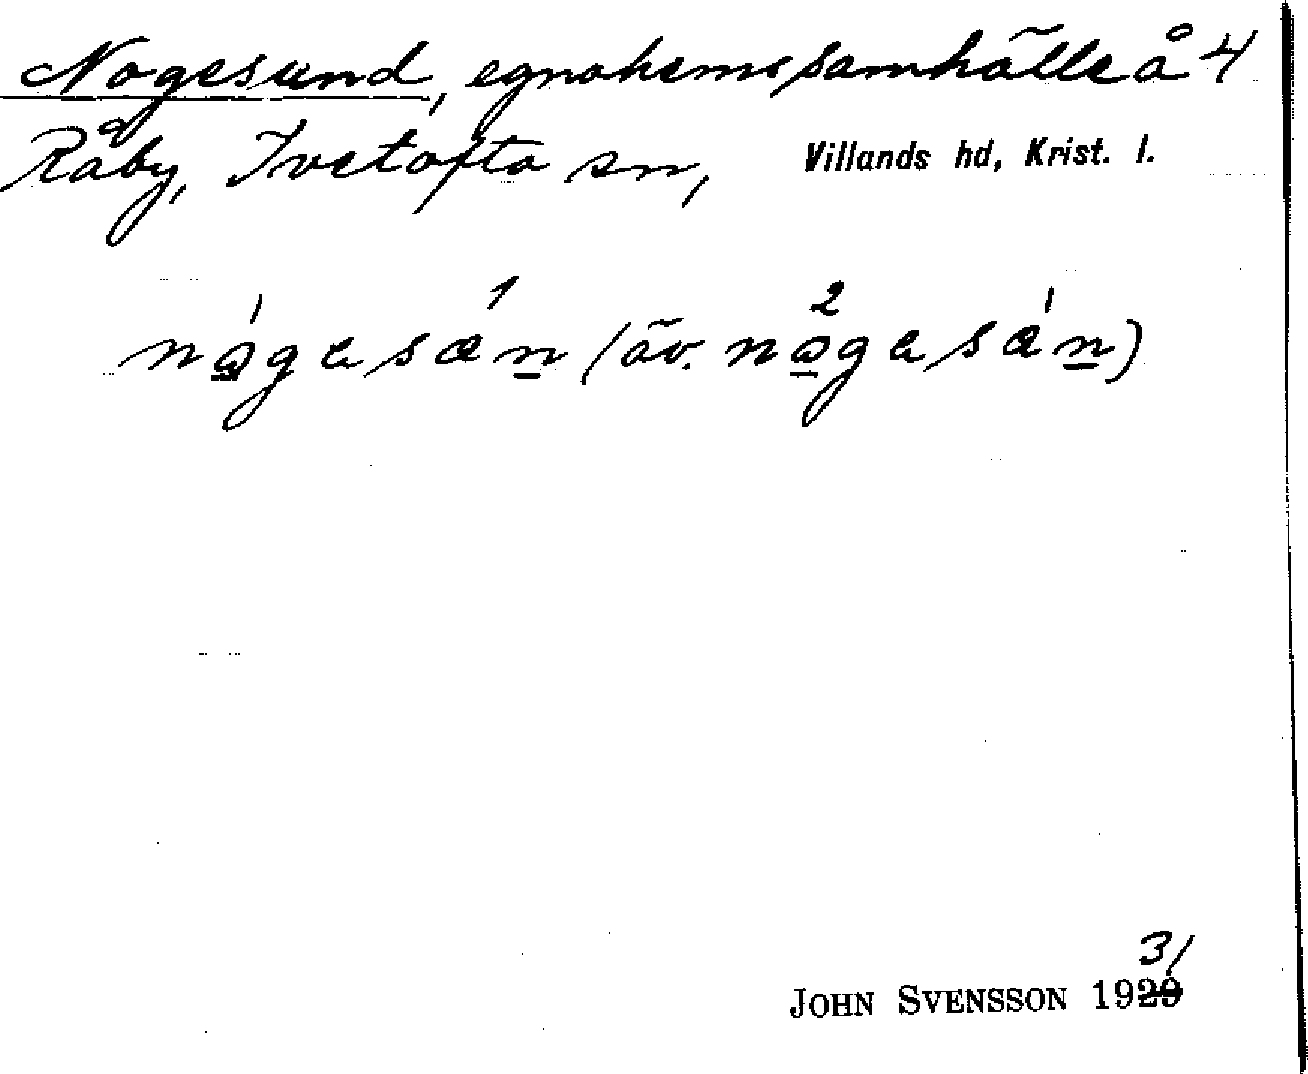 Nogesund, egnahemssamhälle å 4
Råby, Ivetofta sn, Villands hd, Krist. l.
31
JOHN SVENSSON 1929